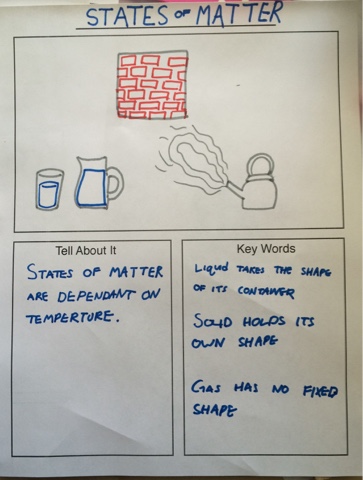 STATES OF MATTER
Tell About It
STATES OF MATTER
ARE DEPENDANT ON
TEMPERTURE.
Key Words
Liquid TAKES THE SHAPE
OF ITS CONTAINER
SOLID HOLDS ITS
OWN SHAPE
GAS HAS NO FIXED
SHAPE